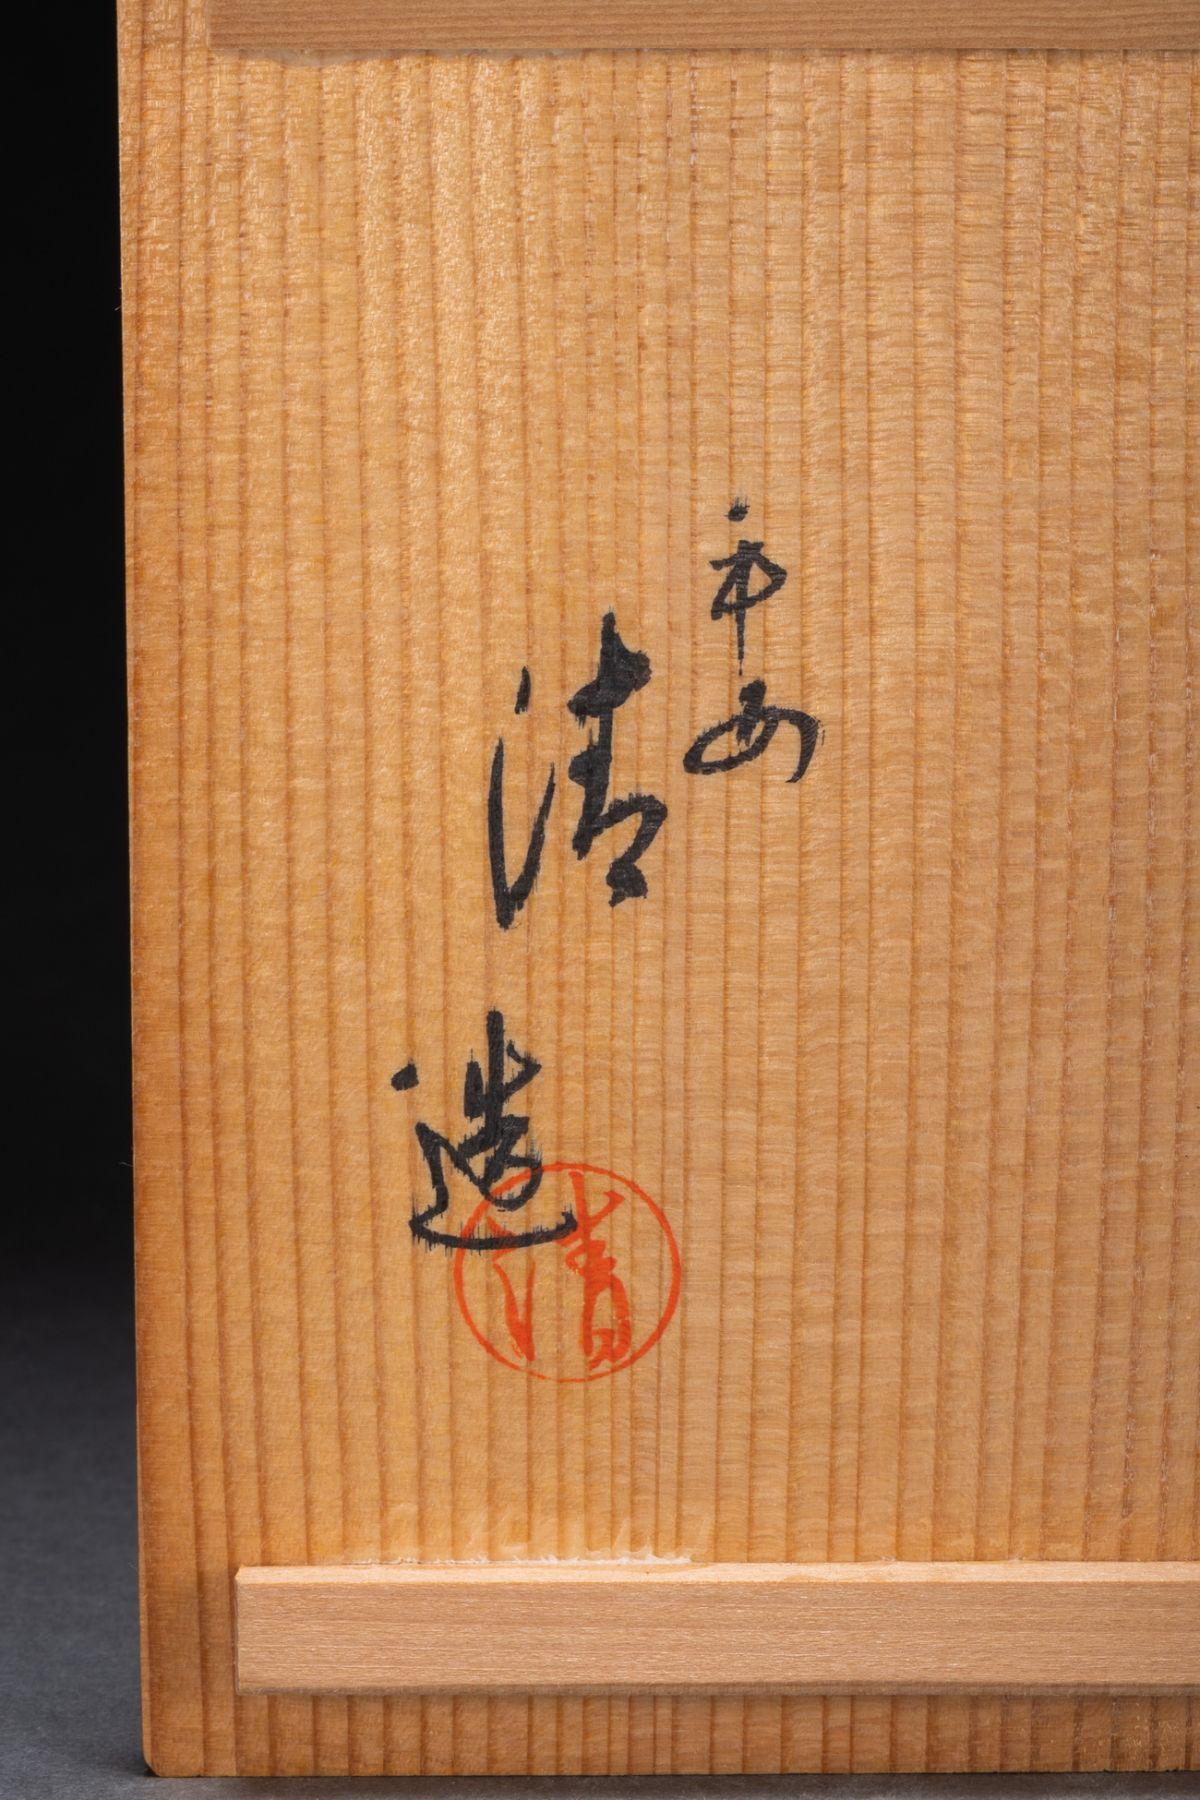 平安
清
造
清